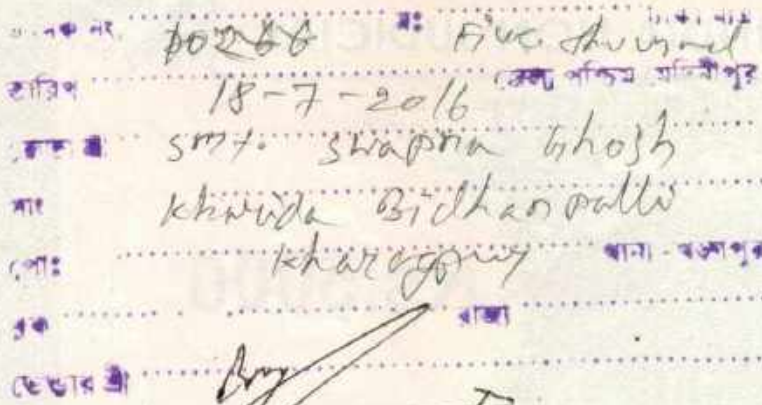 নং 10266 Five thousand
তারিখ 18-7-2016 জেলা পশ্চিম মেদিনীপুর
ক্রেতা শ্রী Smt. Swapna Ghosh
সাং Kharida Bidhanpalli
পোঃ Kharagpur থানা - খড়্গপুর
ব্লক রাজ্য
ভেন্ডার শ্রী